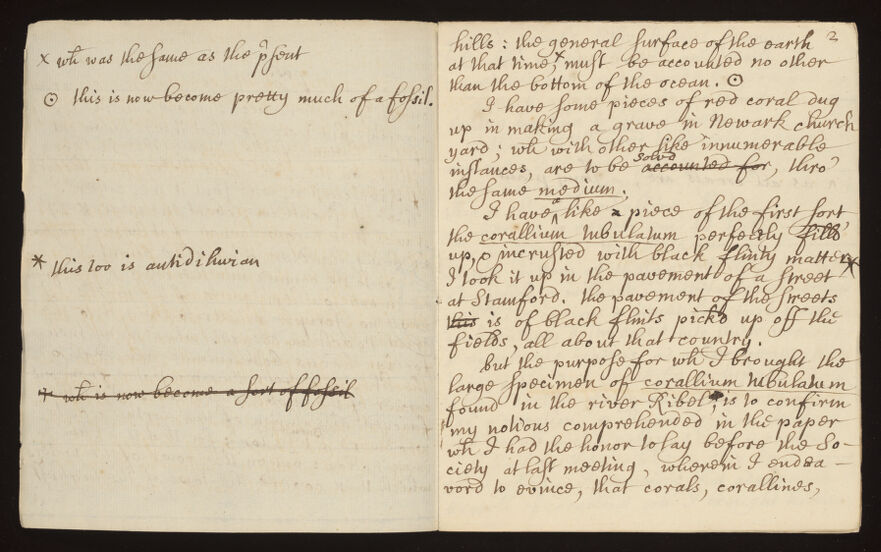 x wh was the same as the p̃sent
⊙ this is now become pretty much of a fossil.
* this too is antidiluvian
+ wh is now become a sort of fossil
2
hills: the general surface of the earth
at that time,x must be accounted no other
than the bottom of the ocean. ⊙
I have some pieces of red coral dug
up in making a grave in Newark church
yard; wh with other like innumerable
instances, are to be solvd accounted for, thro'
the same medium.
I have a like a piece of the first sort
the corallium tubulatum perfectly filld
up, & incrusted with black flinty matter *
I took it up in the pavement of a street
at Stamford. the pavement of the streets
this is of black flints pick'd up off the
fields, all about that country.
but the purpose for wh I brought the
large specimen of corallium tubulatum
found in the river Ribel, is to confirm
my notions comprehended in the paper
wh I had the honor to lay before the So-
ciety at last meeting, wherein I endea-
vord to evince, that corals, corallines,